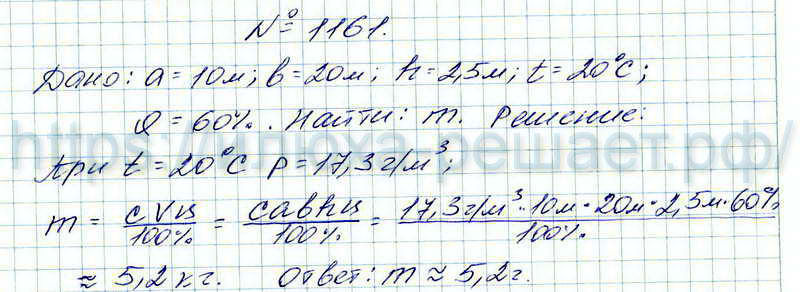 № 1161.
Дано: a = 10м; b = 20м; h = 2,5м; t = 20°C;
φ = 60%. Найти: m. Решение:
https://клюша-решает.рф/
При t = 20°C ρ = 17,3 г/м³;
m = cVψ/100% = cabhψ/100% = 17,3 г/м³·10м·20м·2,5м·60%/100%
≈ 5,2 кг. Ответ: m ≈ 5,2г.